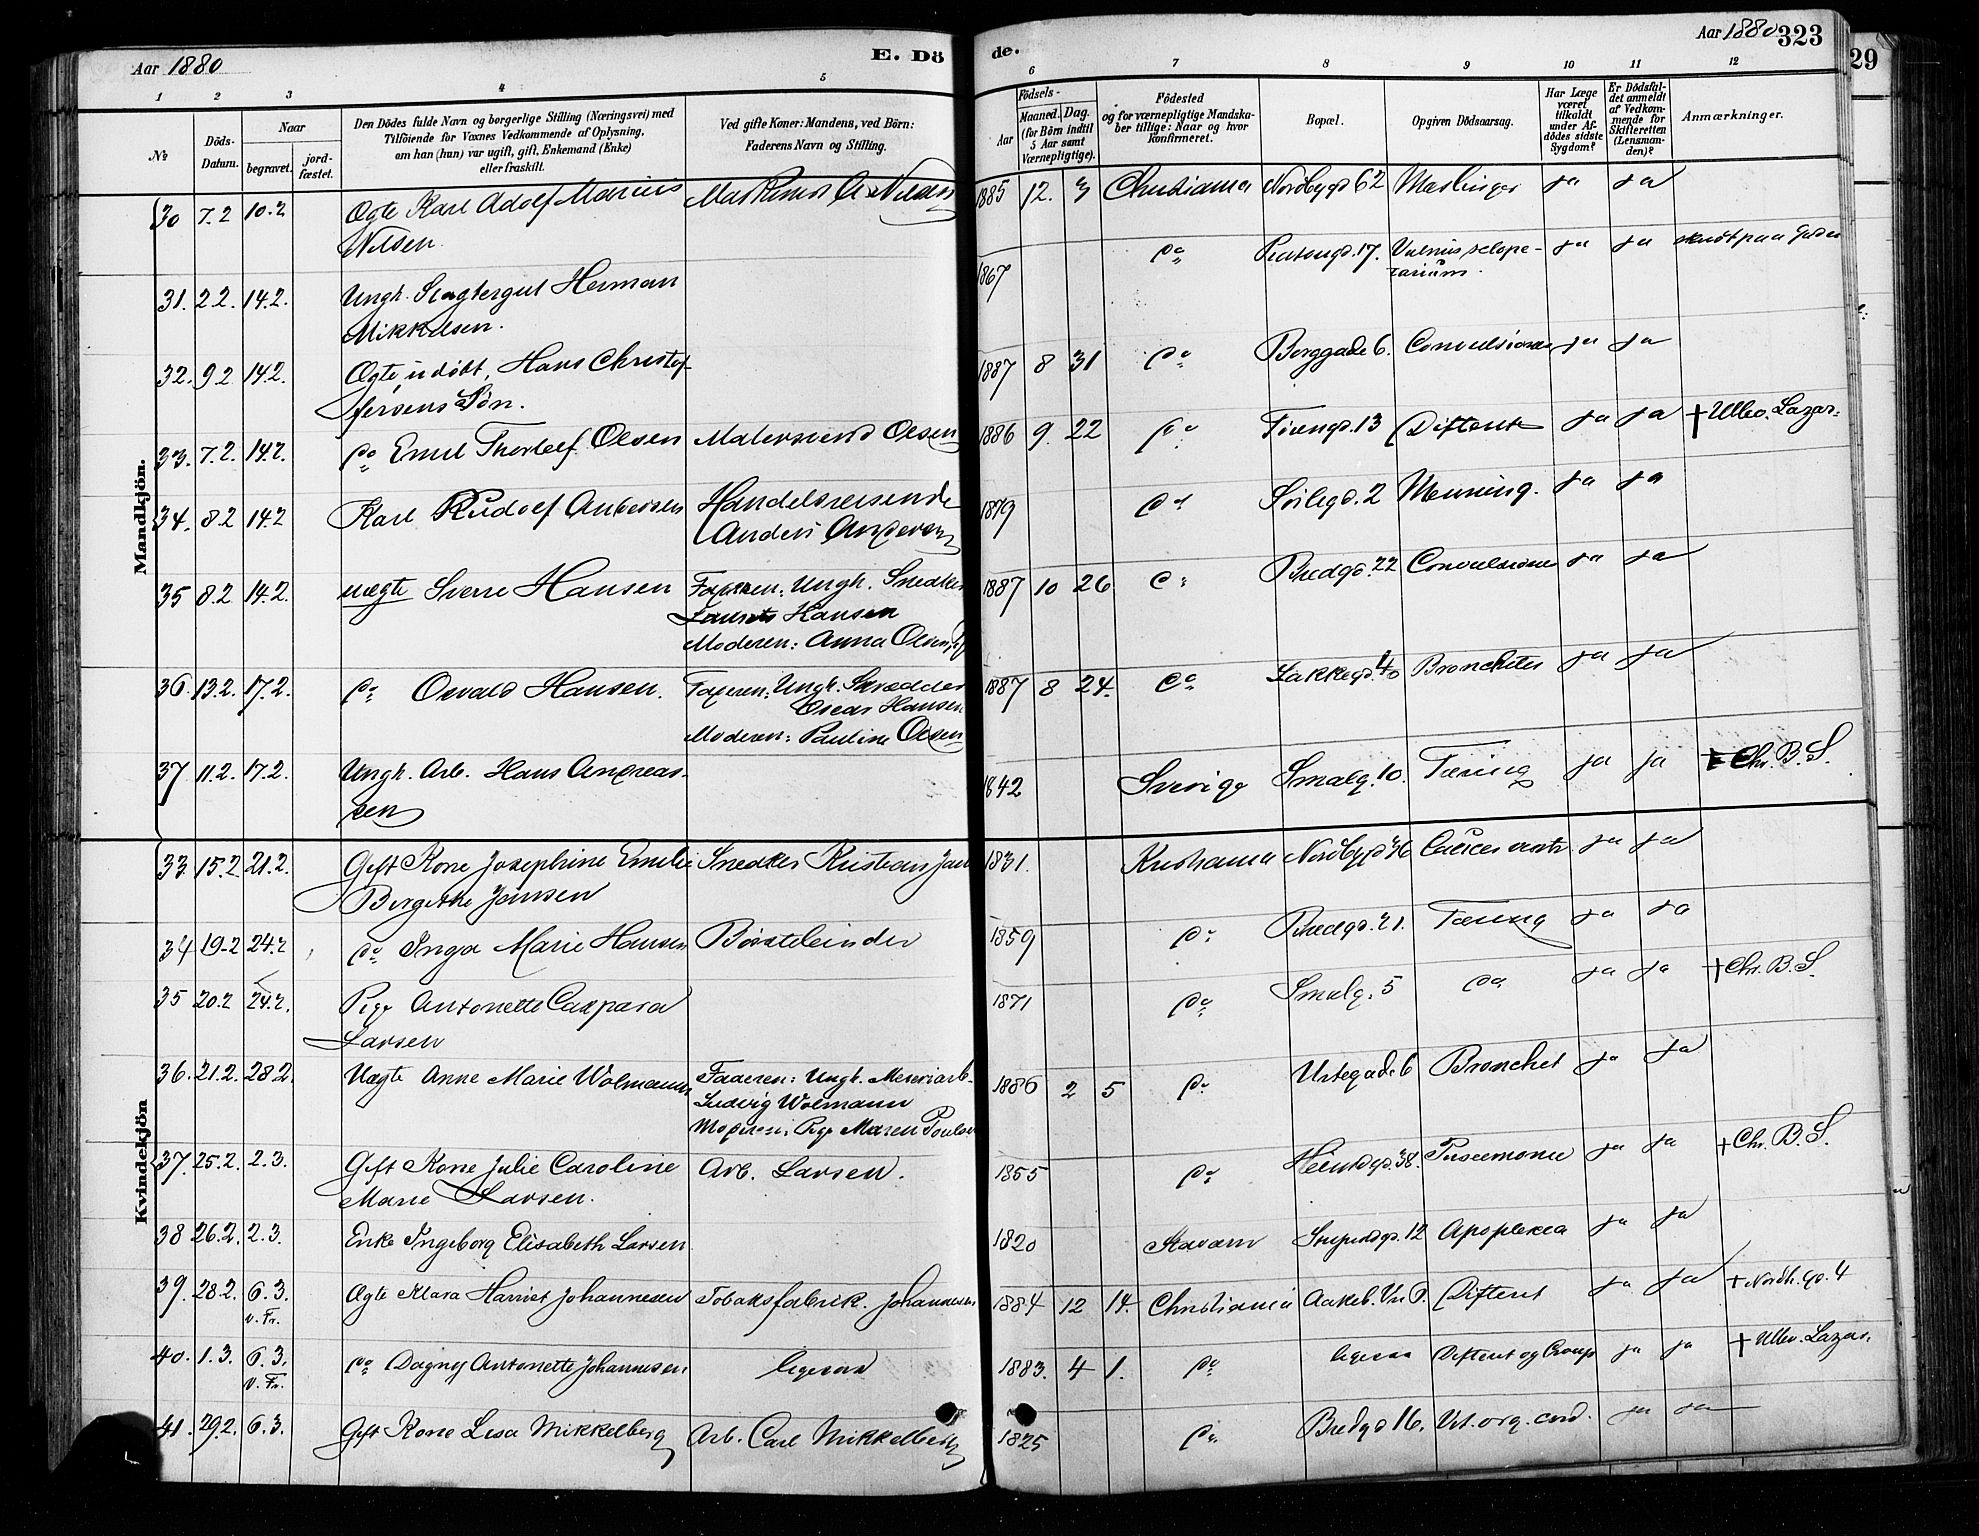 Aar 1880
E. Dö
1 2 3 4 5
№
Döds-
Datum.
Naar
begravet.
jord-
fæstet.
Den Dödes fulde Navn og borgerlige Stilling (Næringsvei) med
Tilföiende för Voxnes Vedkommende af Oplysning,
om han (hun) var ugift, gift, Enkemand (Enke)
eller fraskilt.
Ved gifte Koner: Mandens, ved Börn:
Faderens Navn og Stilling.
Mandkjön.
30 7.2 10.2 Ægte Karl Adolf Marius
Nilsen
31. 2.2. 14.2. Ungk. Slagtergut Herman
Mikkelsen.
32. 9.2 14.2. Ægte, udöbt, Hans Christof-
fersens Sön.
33. 7.2. 14.2. do Emil Thorleif Olsen Malersvend Olsen
34. 8.2 14.2 Karl Rudolf Andersen Handelsreisende
Anders Andersen
35 8.2 14.2. uægte Sverre Hansen Faderen: Ungk. Snedker
Laurits Hansen
Moderen: Anna Olsen
36. 13.2. 17.2. do Osvald Hansen. Faderen: Ungk. Skrædder
Oscar Hansen
Moderen: Pauline Olsen
37 11.2. 17.2. Ungk. Arb. Hans Andreas-
sen
Kvindekjön
33 15.2 21.2. Gift Kone Josephine Emilie Snedker Kristian
Birgithe Jansen
34 19.2 24.2 do Inga Marie Hansen Börstebinder
35 20.2 24.2. Pige Antonette Caspara
Larsen
36. 21.2. 28.2. Uægte Anne Marie Wolmann Faderen: Ungk.
Ludvig Wolmann
Moderen: Pige Maren
37. 25.2. 2.3. Gift Kone Julie Caroline Arb. Larsen.
Marie Larsen.
38 26.2. 2.3. Enke Ingeborg Elisabeth Larsen
39. 28.2. 6.3. Ægte Klara Harriet Johannesen Tobaksfabrik. Johannesen
v. Fr.
40. 1.3. 6.3. do Dagny Antonette Johannesen ligesaa
v. Fr.
41. 29.2. 6.3. Gift Kone Lisa Mikkelberg Arb. Carl Mikkelberg
de.
Aar 1880 323
29
6 7 8 9 10 11 12
Födsels-
Aar
Maaned. Dag.
(for Börn indtil
5 Aar samt
Værnepligtige).
Födested
og for værnepligtige Mandska-
ber tillige: Naar og hvor
konfirmeret.
Bopæl.
Opgiven Dödsaarsag.
Har Læge
været
tilkaldt
under Af-
dödes sidste
Sygdom?
Er Dödsful-
det anmeldt
af Vedkom-
mende for
Skifteretten
(Lensman-
den)?
Anmærkninger.
1885 12. 3 Christiania Nordbygd 62 Mæslinger ja ja
1867 do 17. Vulnus sclope- ja ja skudt paa Gaden
tarium.
1887 8 31 do Borggade 6. Convulsioner ja ja
1886 9. 22 do 13 Difterit ja ja † Ullev. Lazar.
1879 do Söilegd. 2 Menning. ja ja
1887 10 26 do Bredgd. 22 Convulsioner ja ja
1887 8 24. do Lakkegd. 40 Bronchites ja ja
1842 Sverige Smalg. 10. Tæring ja ja † Chr. B. S.
1831. Kristiania Nordbygd 36 Cancer ventr. ja ja
1859 do Bredgd. 21. Tæring ja ja
1871 do Smalg. 5 do ja ja † Chr. B. S.
1886 2 5 do Urtegade 6 Bronchit ja ja
1855 do 38. Pneumonie ja ja † Chr. B. S.
1820 Stavern 12 Apoplexia ja ja
1884 12 14. Christiania Aakeb. Difterit ja ja † Nordb. gd. 4
1883. 4 1. do ligesaa Difterit og Croup ja ja † Ullev. Lazar.
1825 do Bredgd 16. Vit. org. cord. ja ja